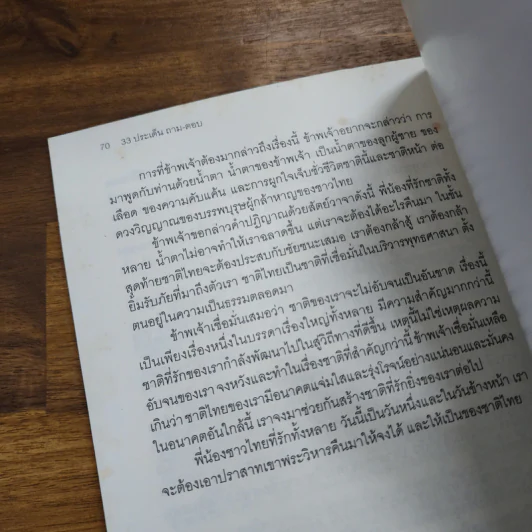 70 33 ประเด็น ถาม-ตอบ
การที่ข้าพเจ้าต้องมากล่าวถึงเรื่องนี้ ข้าพเจ้าอยากจะกล่าวว่า การ
มาพูดกับท่านด้วยน้ำตา น้ำตาของข้าพเจ้า เป็นน้ำตาของลูกผู้ชาย ของ
เลือด ของความคับแค้น และการผูกใจเจ็บชั่วชีวิตชาตินี้และชาติหน้า ต่อ
ดวงวิญญาณของบรรพบุรุษผู้กล้าหาญของชาวไทย
ข้าพเจ้าขอกล่าวคำปฏิญาณด้วยสัตย์วาจาดังนี้ พี่น้องที่รักชาติทั้ง
หลาย น้ำตาไม่อาจทำให้เราฉลาดขึ้น แต่เราจะต้องได้อะไรคืนมา ในชั้น
สุดท้ายชาติไทยจะต้องประสบกับชัยชนะเสมอ เราต้องกล้าสู้ เราต้องกล้า
ยิ้มรับภัยที่มาถึงตัวเรา ชาติไทยเป็นชาติที่เชื่อมั่นในบวรพุทธศาสนา ตั้ง
ตนอยู่ในความเป็นธรรมตลอดมา
ข้าพเจ้าเชื่อมั่นเสมอว่า ชาติของเราจะไม่อับจนเป็นอันขาด เรื่องนี้
เป็นเพียงเรื่องหนึ่งในบรรดาเรื่องใหญ่ทั้งหลาย มีความสำคัญมากกว่านี้
ชาติที่รักของเรากำลังพัฒนาไปในสู่วิถีทางที่ดีขึ้น เหตุนี้ไม่ใช่เหตุผลความ
อับจนของเรา จงหวังและทำในเรื่องชาติที่สำคัญกว่านี้ ข้าพเจ้าเชื่อมั่นเหลือ
เกินว่า ชาติไทยของเรามีอนาคตแจ่มใสและรุ่งโรจน์อย่างแน่นอนและมั่นคง
ในอนาคตอันใกล้นี้ เราจงมาช่วยกันสร้างชาติที่รักยิ่งของเราต่อไป
พี่น้องชาวไทยที่รักทั้งหลาย วันนี้เป็นวันหนึ่งและในวันข้างหน้า เรา
จะต้องเอาปราสาทเขาพระวิหารคืนมาให้จงได้ และให้เป็นของชาติไทย